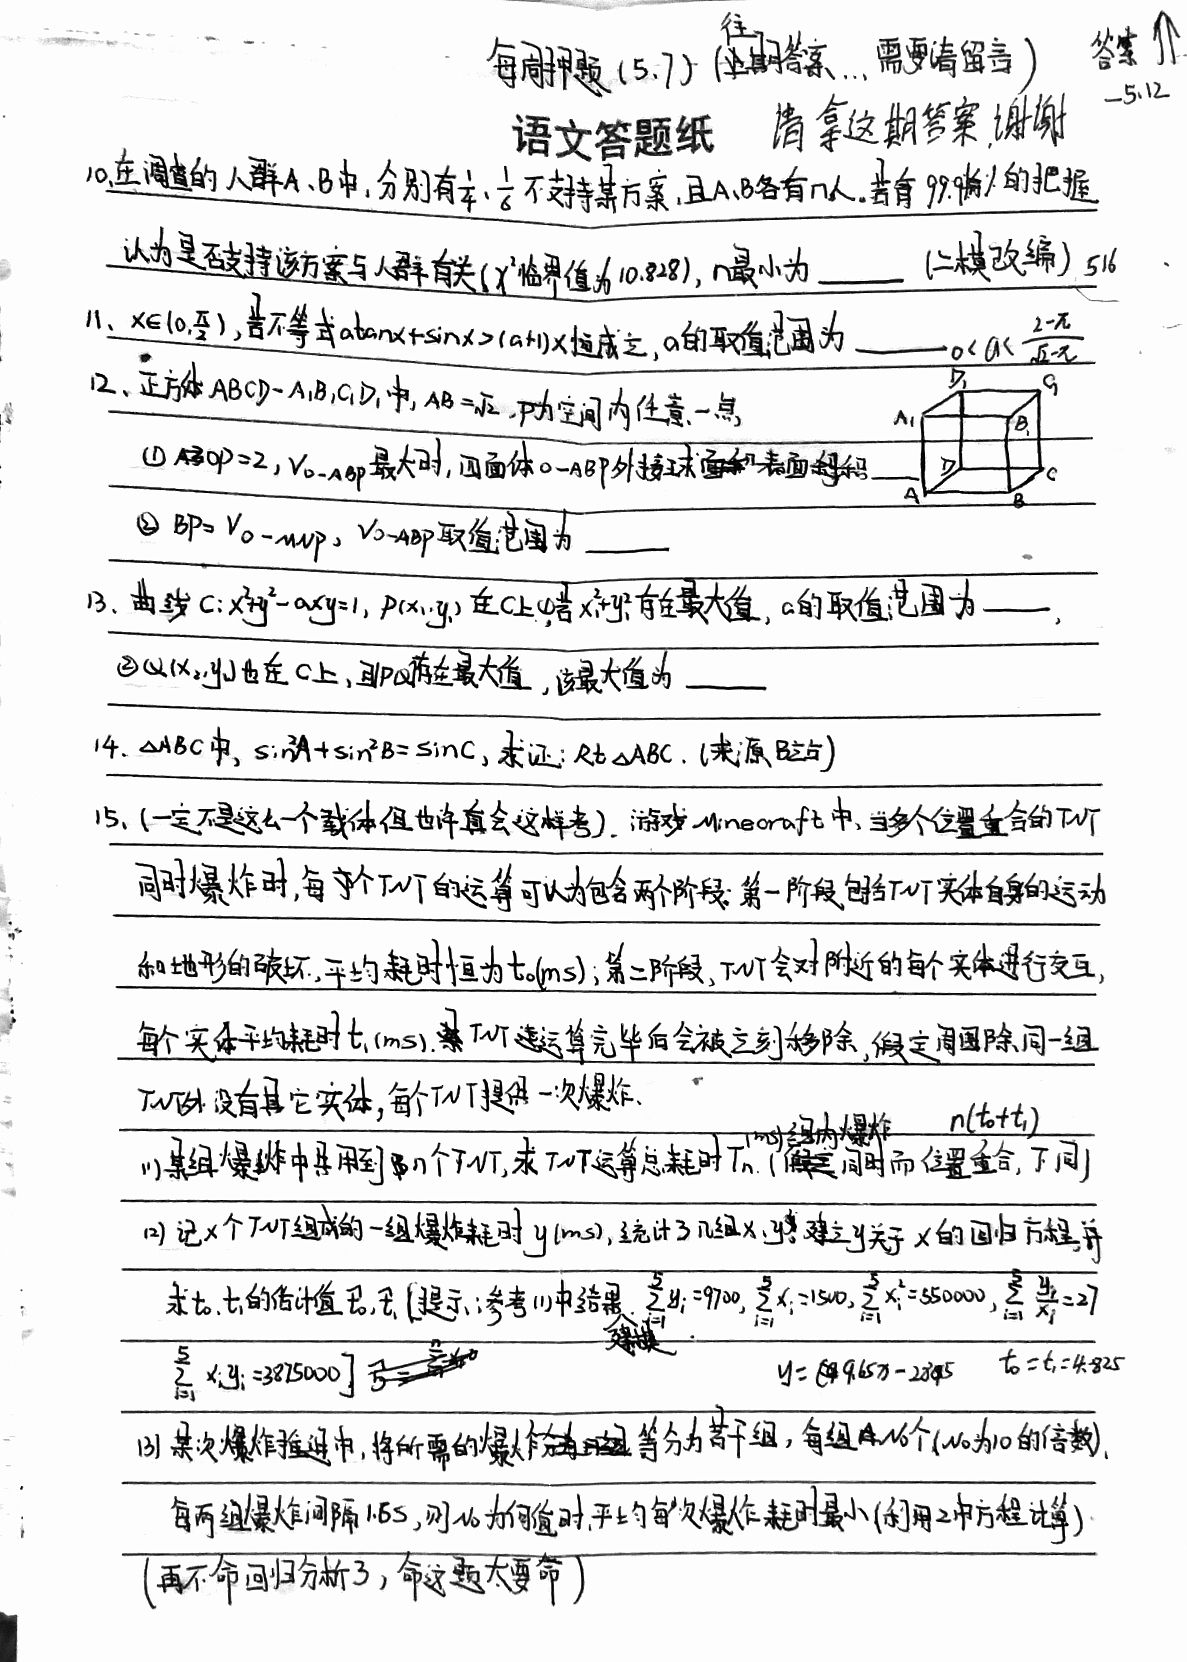 每周押题(5.7)(往期答案...需要请留言) 答案
-5.12
语文答题纸 请拿这期答案,谢谢
10.在调查的人群A、B中,分别有1/4、1/6不支持某方案,且A、B各有n人。若有99.9%的把握
认为是否支持该方案与人群有关(χ²临界值为10.828),n最小为____ (二模改编) 516
11、x∈(0,π/2),若不等式atanx+sinx>(a+1)x恒成立,a的取值范围为____
12、正方体ABCD-A₁B₁C₁D₁中,AB=√2,P为空间内任意一点,
D₁ C₁ A₁ B₁ D C A B
①OP=2,V_{O-ABP}最大时,四面体O-ABP外接球表面积____
②BP=V_{O-MNP},V_{O-ABP}取值范围为____
13、曲线C:x²+y²-axy=1,P(x₁,y₁)在C上,①若x₁²+y₁²存在最大值,a的取值范围为____,
②Q(x₂,y₂)也在C上,且PQ存在最大值,该最大值为____
14、△ABC中,sin²A+sin²B=sinC,求证:Rt△ABC.(来源B站)
15、(一定不是这么一个载体但也许真会这样考).游戏Minecraft中,当多个位置重合的TNT
同时爆炸时,每个TNT的运算可认为包含两个阶段:第一阶段包括TNT实体自身的运动
和地形的破坏,平均耗时恒为t₀(ms);第二阶段,TNT会对附近的每个实体进行交互,
每个实体平均耗时t₁(ms).某TNT运算完毕后会被立刻移除,假定周围除同一组
TNT外没有其它实体,每个TNT提供一次爆炸.
(ms) 组内爆炸 n(t₀+t₁)
(1)某组爆炸中共用到n个TNT,求TNT运算总耗时Tn.(同时而位置重合,下同)
(2)记x个TNT组成的一组爆炸耗时y(ms),统计了几组x、y,建立y关于x的回归方程,并
求t₀、t₁的估计值[提示:参考(1)中结果. Σ_{i=1}^5 y_i=9700,Σ_{i=1}^5 x_i=1500,Σ_{i=1}^5 x_i²=550000,Σ_{i=1}^5 y_i/x_i=27
Σ_{i=1}^5 x_iy_i=3875000] t₀=t₁=4.825
(3)某次爆炸推进中,将所需的爆炸等分为若干组,每组N₀个(N₀为10的倍数),
每两组爆炸间隔1.65s,则N₀为何值时,平均每次爆炸耗时最小(利用2中方程计算)
(再不命回归分析了,命这题太要命)